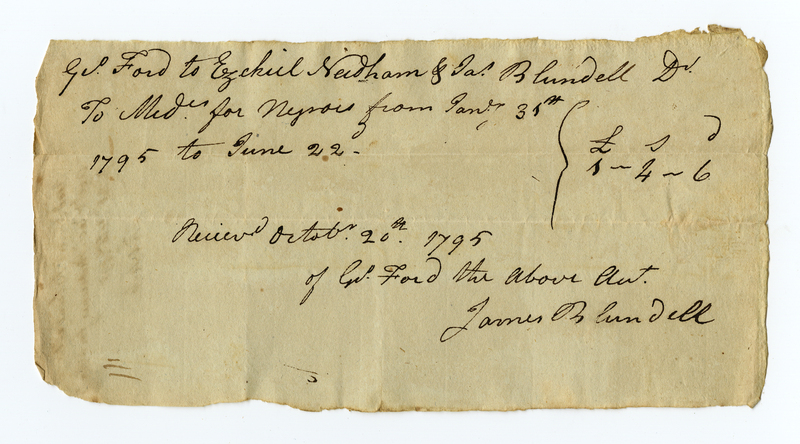 Gs. Ford to Ezekiel Needham & Jas. Blundell Dr.
To Medes. for Negrois from Jany. 31st
1795 to June 22 -
£ s d
1 - 4 - 6
Reciev'd Octobr. 20th. 1795
of Gs. Ford the above Act.
James Blundell